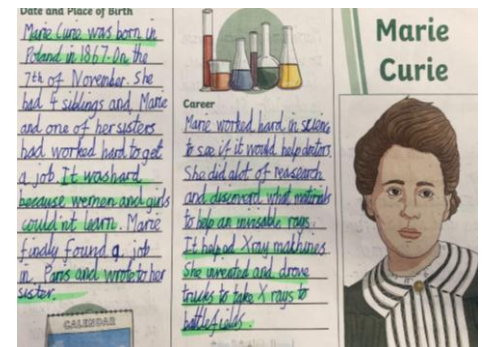 Date and Place of Birth
Marie Curie was born in
Poland in 1867. On the
7th of November. She
had 4 siblings and Marie
and one of her sisters
had worked hard to get
a job. It was hard
because women and girls
could'nt learn. Marie
findly found a job
in Paris and wrote to her
sister.
CALENDAR
Career
Marie worked hard in scienc
to see if it would help doctors.
She did alot of reasearch
and discoverd what materials
to help an invisable rays.
It helped Xray machines.
She invented and drove
trucks to take X rays to
battlefields.
Marie
Curie